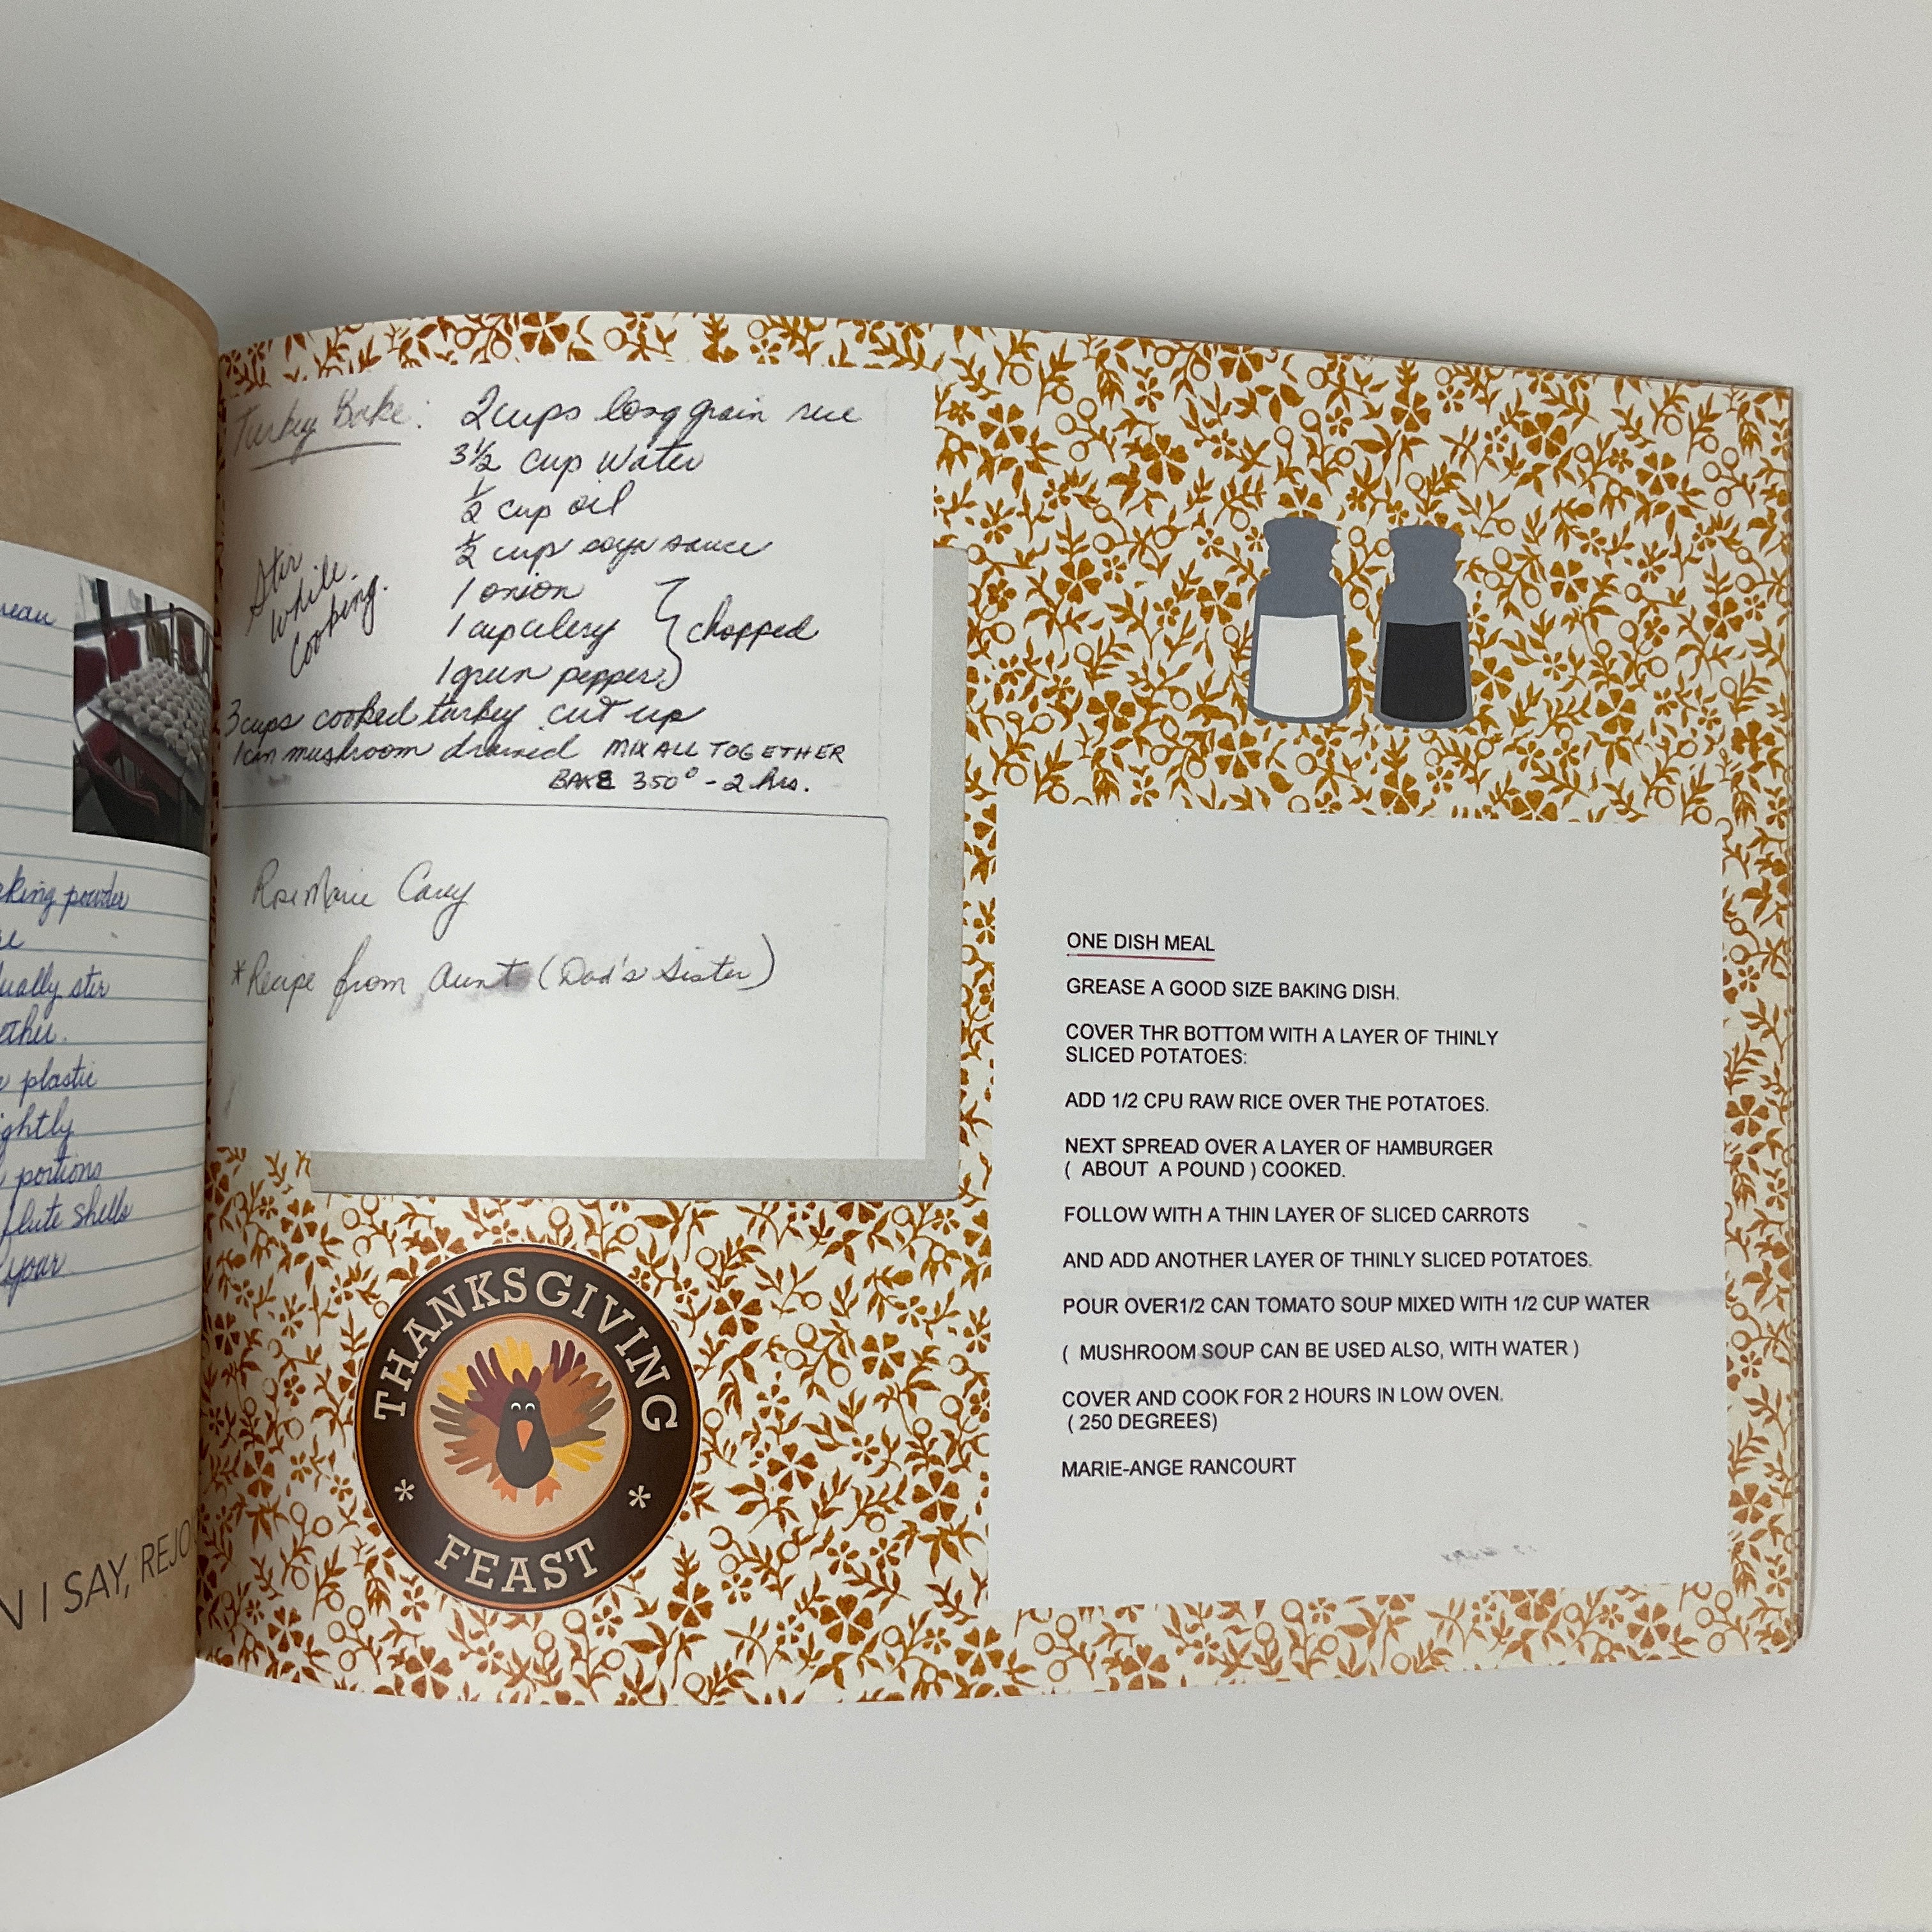 eau
king powder
ually stir
plastic
ightly
portions
flute shells
your
N I SAY, REJO
Turkey Bake:
2 cups long grain rice
3 1/2 cup Water
1/2 cup oil
1/2 cup soya sauce
1 onion
1 cup celery
1 green pepper
chopped
Stir
While
Cooking.
3 cups cooked turkey cut up
1 can mushroom drained MIX ALL TOGETHER
BAKE 350° - 2 hrs.
RoseMarie Cary
*Recipe from Aunt (Dad's Sister)
THANKSGIVING
FEAST
ONE DISH MEAL
GREASE A GOOD SIZE BAKING DISH.
COVER THR BOTTOM WITH A LAYER OF THINLY
SLICED POTATOES:
ADD 1/2 CPU RAW RICE OVER THE POTATOES.
NEXT SPREAD OVER A LAYER OF HAMBURGER
( ABOUT A POUND ) COOKED.
FOLLOW WITH A THIN LAYER OF SLICED CARROTS
AND ADD ANOTHER LAYER OF THINLY SLICED POTATOES.
POUR OVER1/2 CAN TOMATO SOUP MIXED WITH 1/2 CUP WATER
( MUSHROOM SOUP CAN BE USED ALSO, WITH WATER )
COVER AND COOK FOR 2 HOURS IN LOW OVEN.
( 250 DEGREES)
MARIE-ANGE RANCOURT